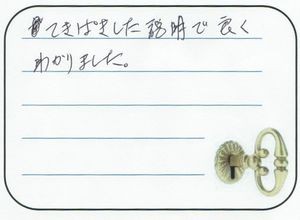 てきぱきした説明で良く
わかりました。